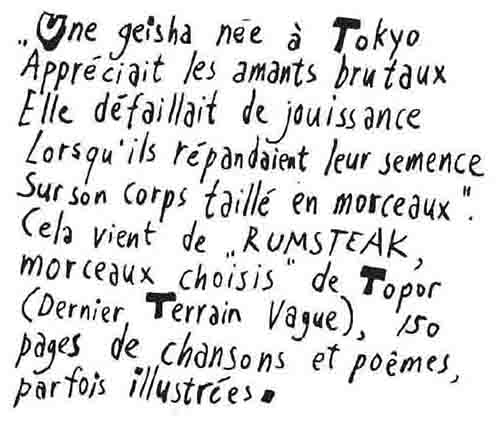 „Une geisha née à Tokyo
Appréciait les amants brutaux
Elle défaillait de jouissance
Lorsqu'ils répandaient leur semence
Sur son corps taillé en morceaux".
Cela vient de „RUMSTEAK,
morceaux choisis" de Topor
(Dernier Terrain Vague), 150
pages de chansons et poèmes,
parfois illustrées.